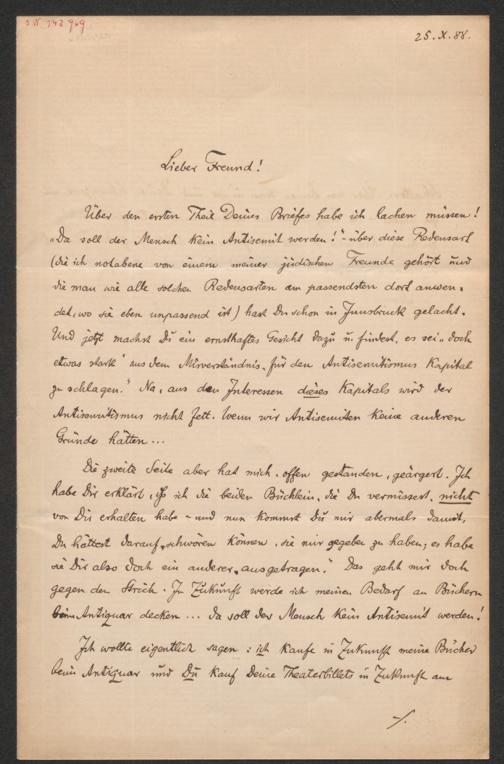 25. X. 88.
Lieber Freund!
Über den ersten Theil Deines Briefes habe ich lachen müssen!
„Da soll der Mensch kein Antisemit werden!" - über diese Redensart
(die ich notabene von einem meiner jüdischen Freunde gehört und
die man wie alle solchen Redensarten am passendsten dort anwen-
det, wo sie eben unpassend ist) hast Du schon in Innsbruck gelacht.
Und jetzt machst Du ein ernsthaftes Gesicht dazu u. findest, es sei „doch
etwas stark" aus dem Misverständnis „für den Antisemitismus Kapital
zu schlagen." Na, aus den Interessen dieses Kapitals wird der
Antisemitismus nicht fett. Wenn wir Antisemiten keine anderen
Gründe hätten ...
Die zweite Seite aber hat mich, offen gestanden, geärgert. Ich
habe Dir erklärt, daß ich die beiden Büchlein, die Du vermissest, nicht
von Dir erhalten habe - und nun kommst Du mir abermals damit,
Du hättest darauf „schwören können, sie mir gegeben zu haben, es habe
sie Dir also doch ein anderer „ausgetragen." Das geht mir doch
gegen den Strich. In Zukunft werde ich meinen Bedarf an Büchern
beim Antiquar decken ... Da soll der Mensch kein Antisemit werden!
Ich wollte eigentlich sagen: ich kaufe in Zukunft meine Bücher
beim Antiquar und Du kauf Deine Theaterbillets in Zukunft am